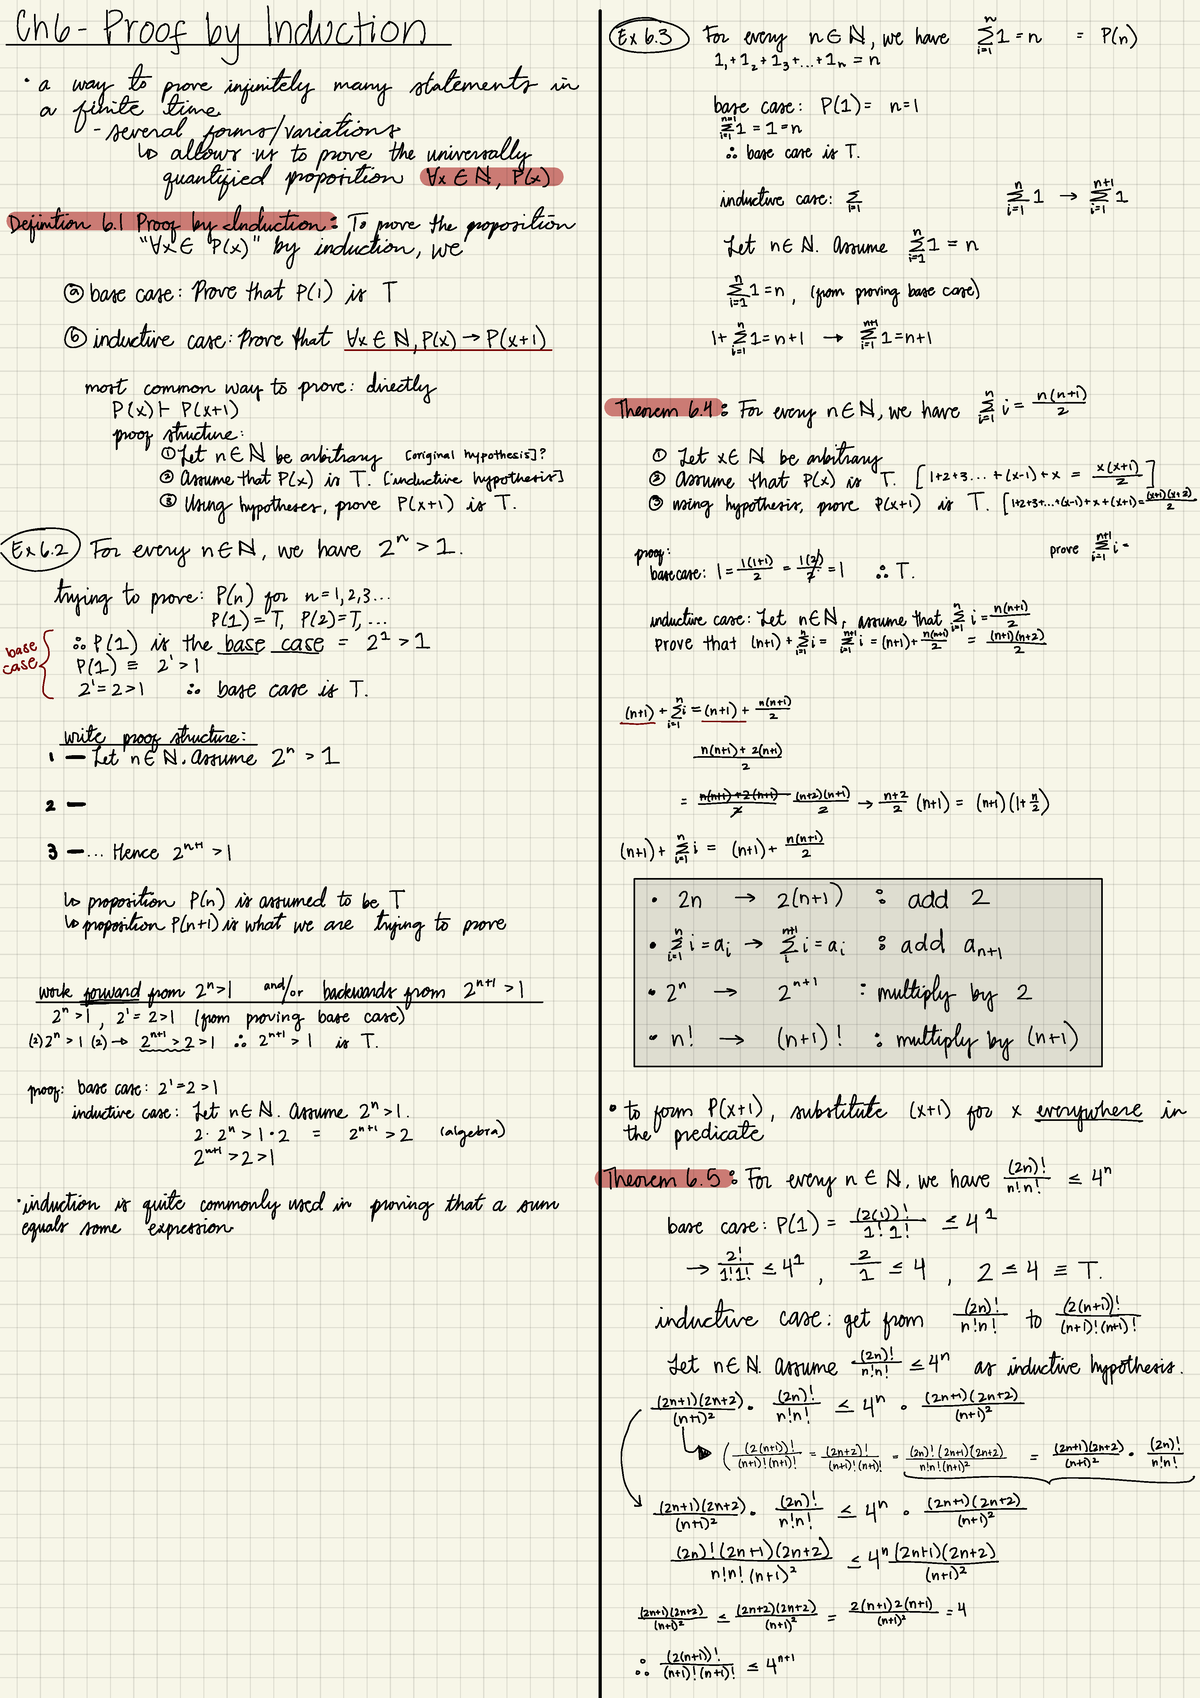 Ch6 - Proof by Induction
· a way to prove infinitely many statements in
a finite time
- several forms/variations
↳ allows us to prove the universally
quantified proposition ∀x ∈ ℕ, P(x)
Definition 6.1 Proof by Induction: To prove the proposition
"∀x ∈ P(x)" by induction, we
ⓐ base case: Prove that P(1) is T
ⓑ inductive case: Prove that ∀x ∈ ℕ, P(x) → P(x+1)
most common way to prove: directly
P(x) ⊢ P(x+1)
proof structure:
① Let n ∈ ℕ be arbitrary [original hypothesis]?
② Assume that P(x) is T. [inductive hypothesis]
③ Using hypotheses, prove P(x+1) is T.
Ex 6.2 For every n ∈ ℕ, we have 2ⁿ > 1.
trying to prove: P(n) for n = 1, 2, 3...
P(1) = T, P(2) = T, ...
base case
∴ P(1) is the base case = 2¹ > 1
P(1) ≡ 2¹ > 1
2¹ = 2 > 1 ∴ base case is T.
write proof structure:
1 — Let n ∈ ℕ. Assume 2ⁿ > 1
2 —
3 — ... Hence 2ⁿ⁺¹ > 1
↳ proposition P(n) is assumed to be T
↳ proposition P(n+1) is what we are trying to prove
work forward from 2ⁿ > 1 and/or backwards from 2ⁿ⁺¹ > 1
2ⁿ > 1, 2¹ = 2 > 1 (from proving base case)
(2) 2ⁿ > 1 (2) → 2ⁿ⁺¹ > 2 > 1 ∴ 2ⁿ⁺¹ > 1 is T.
proof: base case: 2¹ = 2 > 1
inductive case: Let n ∈ ℕ. Assume 2ⁿ > 1.
2 · 2ⁿ > 1 · 2 = 2ⁿ⁺¹ > 2 (algebra)
2ⁿ⁺¹ > 2 > 1
· induction is quite commonly used in proving that a sum
equals some expression
Ex 6.3 For every n ∈ ℕ, we have Σ_{i=1}^{n} 1 = n = P(n)
1₁ + 1₂ + 1₃ + ... + 1ₙ = n
base case: P(1) = n = 1
Σ_{i=1}^{n=1} 1 = 1 = n
∴ base case is T.
inductive case: Σ_{i=1} Σ_{i=1}^{n} 1 → Σ_{i=1}^{n+1} 1
Let n ∈ ℕ. Assume Σ_{i=1}^{n} 1 = n
Σ_{i=1}^{n} 1 = n, (from proving base case)
1 + Σ_{i=1}^{n} 1 = n+1 → Σ_{i=1}^{n+1} 1 = n+1
Theorem 6.4: For every n ∈ ℕ, we have Σ_{i=1}^{n} i = n(n+1)/2
① Let x ∈ ℕ be arbitrary
② Assume that P(x) is T. [1+2+3...+(x-1)+x = x(x+1)/2]
③ using hypothesis, prove P(x+1) is T. [1+2+3+...+(x-1)+x+(x+1) = (x+1)(x+2)/2]
proof: prove Σ_{i=1}^{n+1} i =
base case: 1 = 1(1+1)/2 = 1(2)/2 = 1 ∴ T.
inductive case: Let n ∈ ℕ, assume that Σ_{i=1}^{n} i = n(n+1)/2
Prove that (n+1) + Σ_{i=1}^{n} i = Σ_{i=1}^{n+1} i = (n+1) + n(n+1)/2 = (n+1)(n+2)/2
(n+1) + Σ_{i=1}^{n} i = (n+1) + n(n+1)/2
n(n+1) + 2(n+1)/2
= n(n+1)+2(n+1)/2 (n+2)(n+1)/2 → n+2/2 (n+1) = (n+1)(1+n/2)
(n+1) + Σ_{i=1}^{n} i = (n+1) + n(n+1)/2
• 2n → 2(n+1) : add 2
• Σ_{i=1}^{n} i = aᵢ → Σ_{i}^{n+1} i = aᵢ : add aₙ₊₁
• 2ⁿ → 2ⁿ⁺¹ : multiply by 2
• n! → (n+1)! : multiply by (n+1)
• to form P(x+1), substitute (x+1) for x everywhere in
the predicate
Theorem 6.5: For every n ∈ ℕ, we have (2n)!/n!n! ≤ 4ⁿ
base case: P(1) = (2(1))!/1!1! ≤ 4¹
→ 2!/1!1! ≤ 4¹, 2/1 ≤ 4, 2 ≤ 4 ≡ T.
inductive case: get from (2n)!/n!n! to (2(n+1))!/(n+1)!(n+1)!
Let n ∈ ℕ. Assume (2n)!/n!n! ≤ 4ⁿ as inductive hypothesis.
(2n+1)(2n+2)/(n+1)² · (2n)!/n!n! ≤ 4ⁿ · (2n+1)(2n+2)/(n+1)²
( (2(n+1))!/(n+1)!(n+1)! = (2n+2)!/(n+1)!(n+1)! = (2n)!(2n+1)(2n+2)/n!n!(n+1)² = (2n+1)(2n+2)/(n+1)² · (2n)!/n!n!
(2n+1)(2n+2)/(n+1)² · (2n)!/n!n! ≤ 4ⁿ · (2n+1)(2n+2)/(n+1)²
(2n)!(2n+1)(2n+2)/n!n!(n+1)² ≤ 4ⁿ (2n+1)(2n+2)/(n+1)²
(2n+1)(2n+2)/(n+1)² ≤ (2n+2)(2n+2)/(n+1)² = 2(n+1)2(n+1)/(n+1)² = 4
∴ (2(n+1))!/(n+1)!(n+1)! ≤ 4ⁿ⁺¹